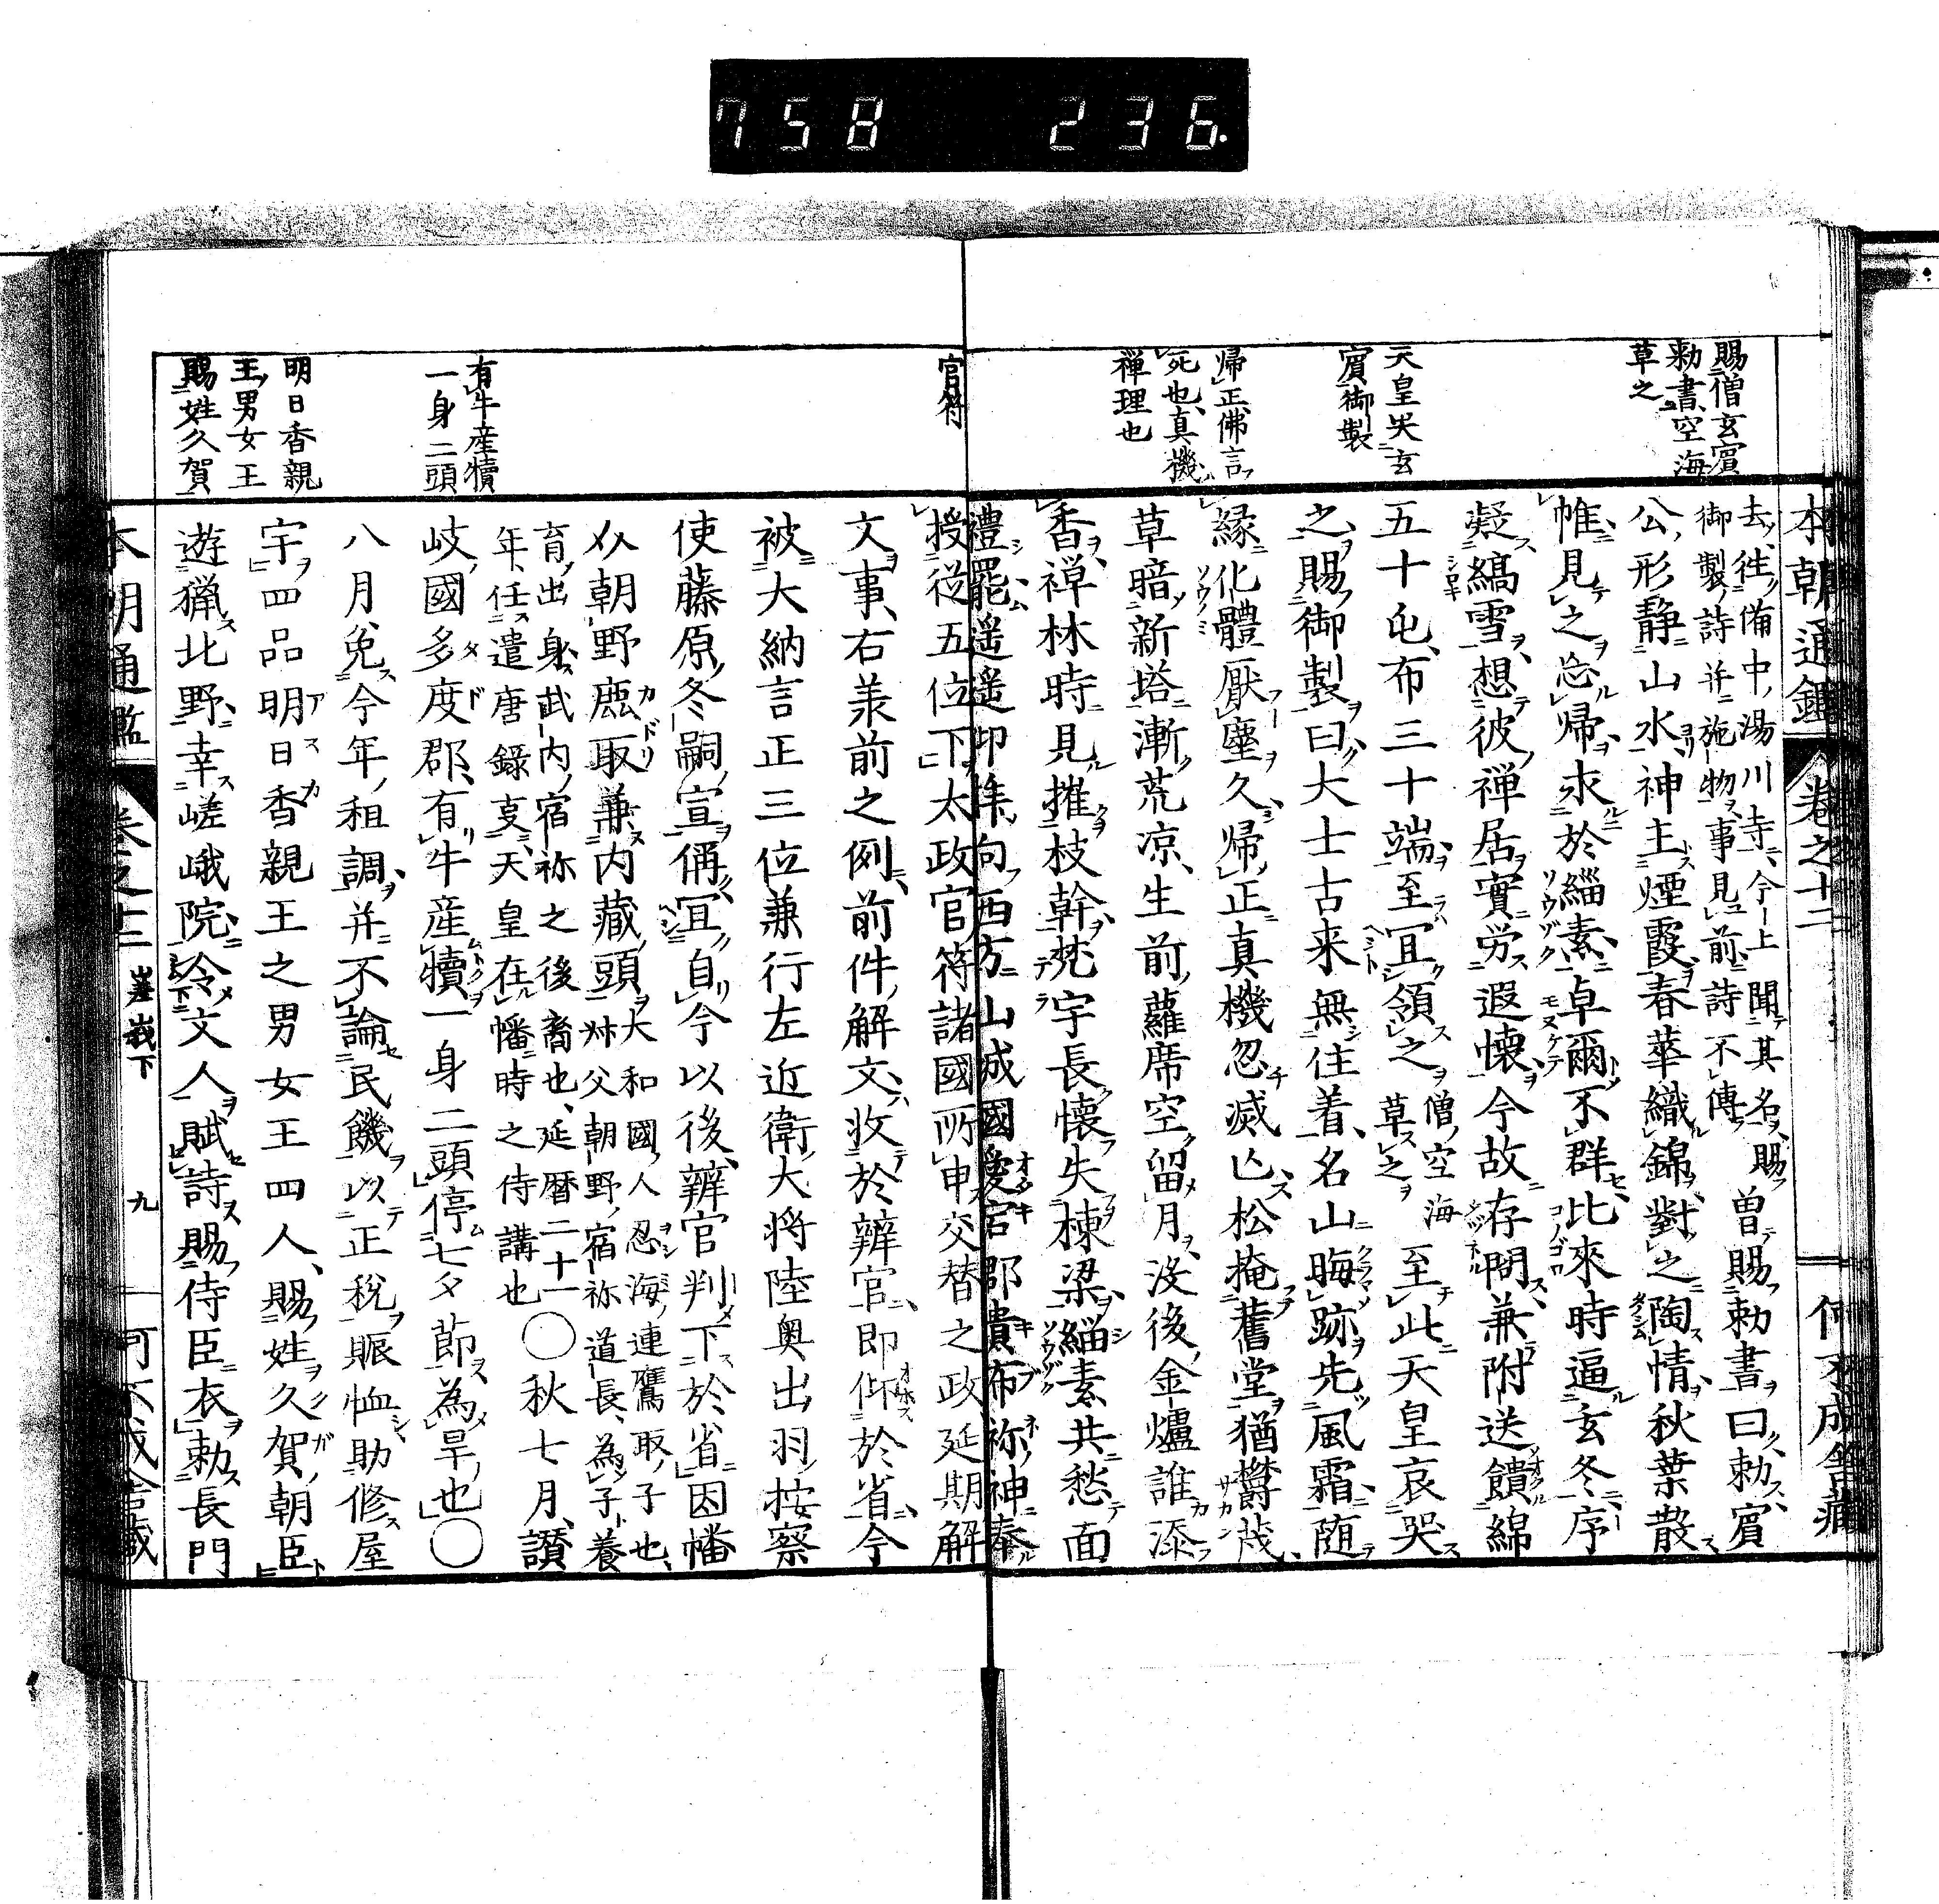 758 236.
賜僧玄賓
勅書空海
草之
天皇哭玄
賓御製
帰正佛言
死也真機
禅理也
本朝通鑑 卷之十二
去往備中湯川寺今上聞其名賜
御製詩并施物事見前詩不傳
曽賜勅書曰勅賓
公形静山水神主煙霞春華織錦對之陶情秋葉散
帷見之忘帰求於緇素卓爾不群比來時逼玄冬序
凝縞雪想彼禅居實労遐懐今故存問兼附送饋綿
五十屯布三十端至冝領之僧空海
草之至此天皇哀哭
之賜御製曰大士古来無住着名山晦跡先風霜随
縁化體厭塵久帰正真機忽滅亾松掩舊堂猶欝茂
草暗新塔漸荒凉生前蘿席空留月没後金爐誰添
香禅林時見摧枝幹梵宇長懐失棟梁緇素共愁面
禮罷遥遥仰向西方山城國愛宕郡貴布祢神奉
官符
有牛産犢
一身二頭
明日香親
王男女王
賜姓久賀
授従五位下太政官符諸國所申交替之政延期解
文事右羕前之例前件解文收於辨官即仰於省今
被大納言正三位兼行左近衛大将陸奥出羽按察
使藤原冬嗣宣偁冝自今以後辨官判下於省因幡
介朝野鹿取兼内藏頭大和國人忍海連鷹取子也
叔父朝野宿祢道長為子養
育出身武内宿祢之後裔也延暦二十一
年任遣唐錄事天皇在幡時之侍講也
〇秋七月讃
岐國多度郡有牛産犢一身二頭停七夕節為旱也〇
八月免今年租調并不論民饑以正税賑恤助修屋
宇四品明日香親王之男女王四人賜姓久賀朝臣
遊猟北野幸嵯峨院令文人賦詩賜侍臣衣勅長門
本朝通鑑 卷之十二 嵯峨下 九